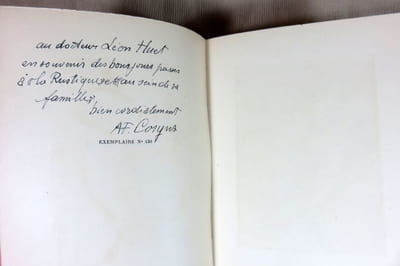 au docteur Léon Huet
en souvenir des bons jours passés
à la Rustique et au sein de sa
famille,
bien cordialement
AF. Cosyns
EXEMPLAIRE Nº